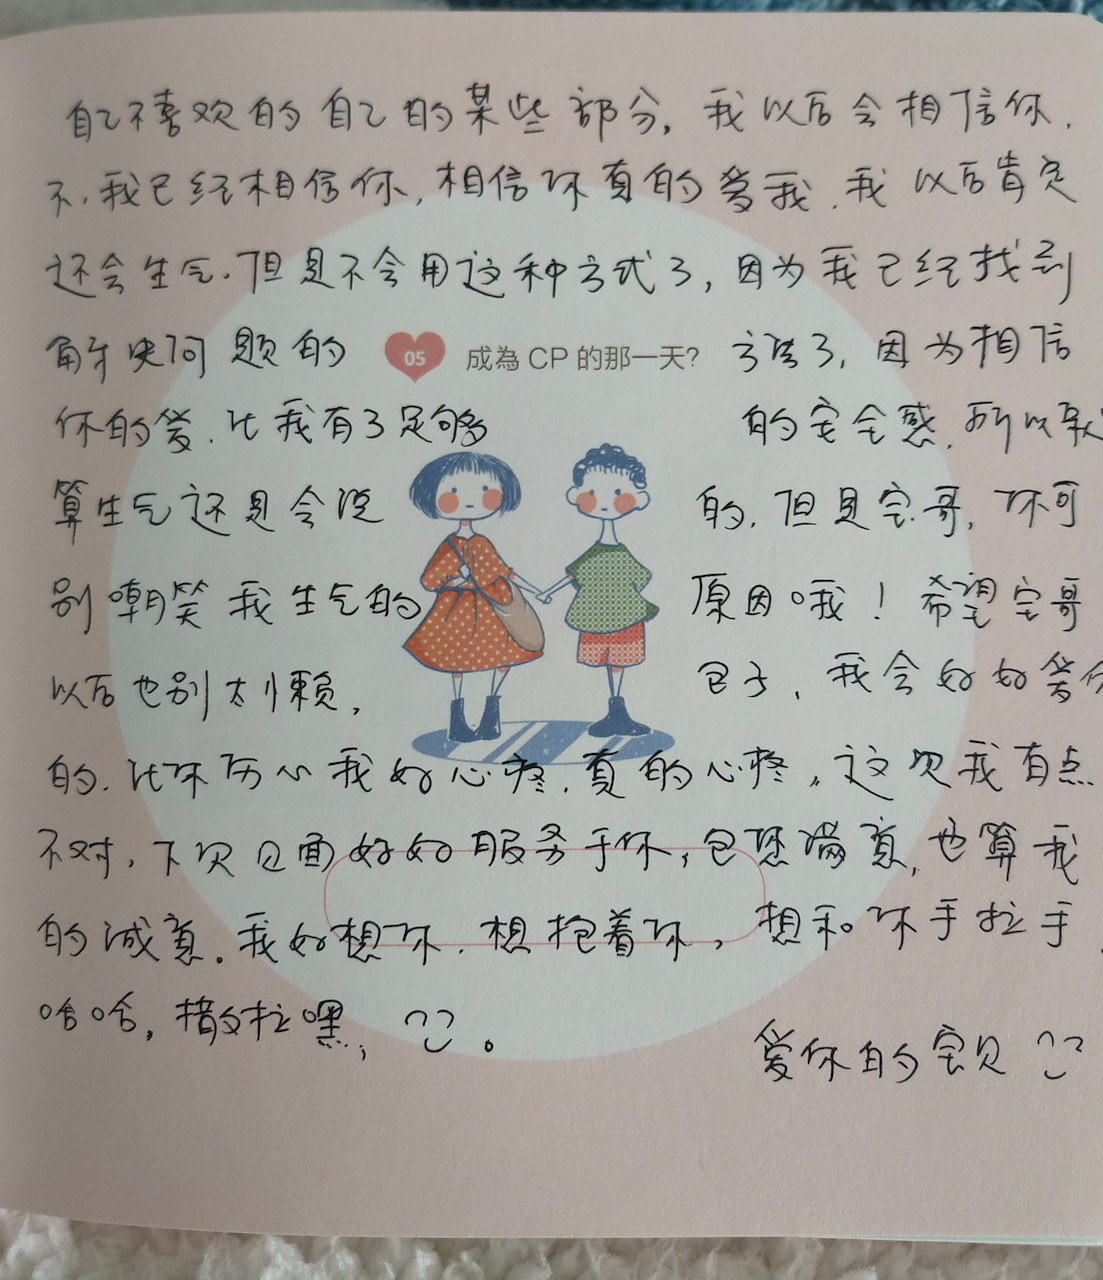 自己不喜欢的自己的某些部分，我以后会相信你，
不，我已经相信你，相信你真的爱我，我以后肯定
还会生气，但是不会用这种方式了，因为我已经找到
解决问题的方法了，因为相信
05 成為 CP 的那一天?
你的爱，让我有了足够的安全感，所以就
算生气还是会说的，但是宝哥，你可
别嘲笑我生气的原因哦！希望宝哥
以后也别太狠，包子，我会好好爱你
的，让你伤心我好心疼，真的心疼。这次我有点
不对，下次见面好好服务于你，包您满意，也算我
的诚意。我好想你，想抱着你，想和你手拉手，
哈哈，撒拉嘿，
爱你的宝贝